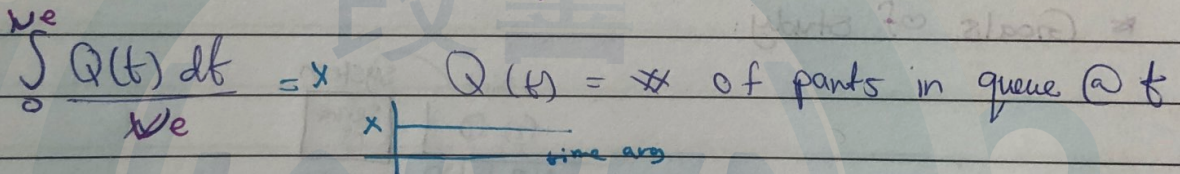 Ne
∫ Q(t) dt = x Q(t) = # of parts in queue @ t
0 Ne
x
time avg